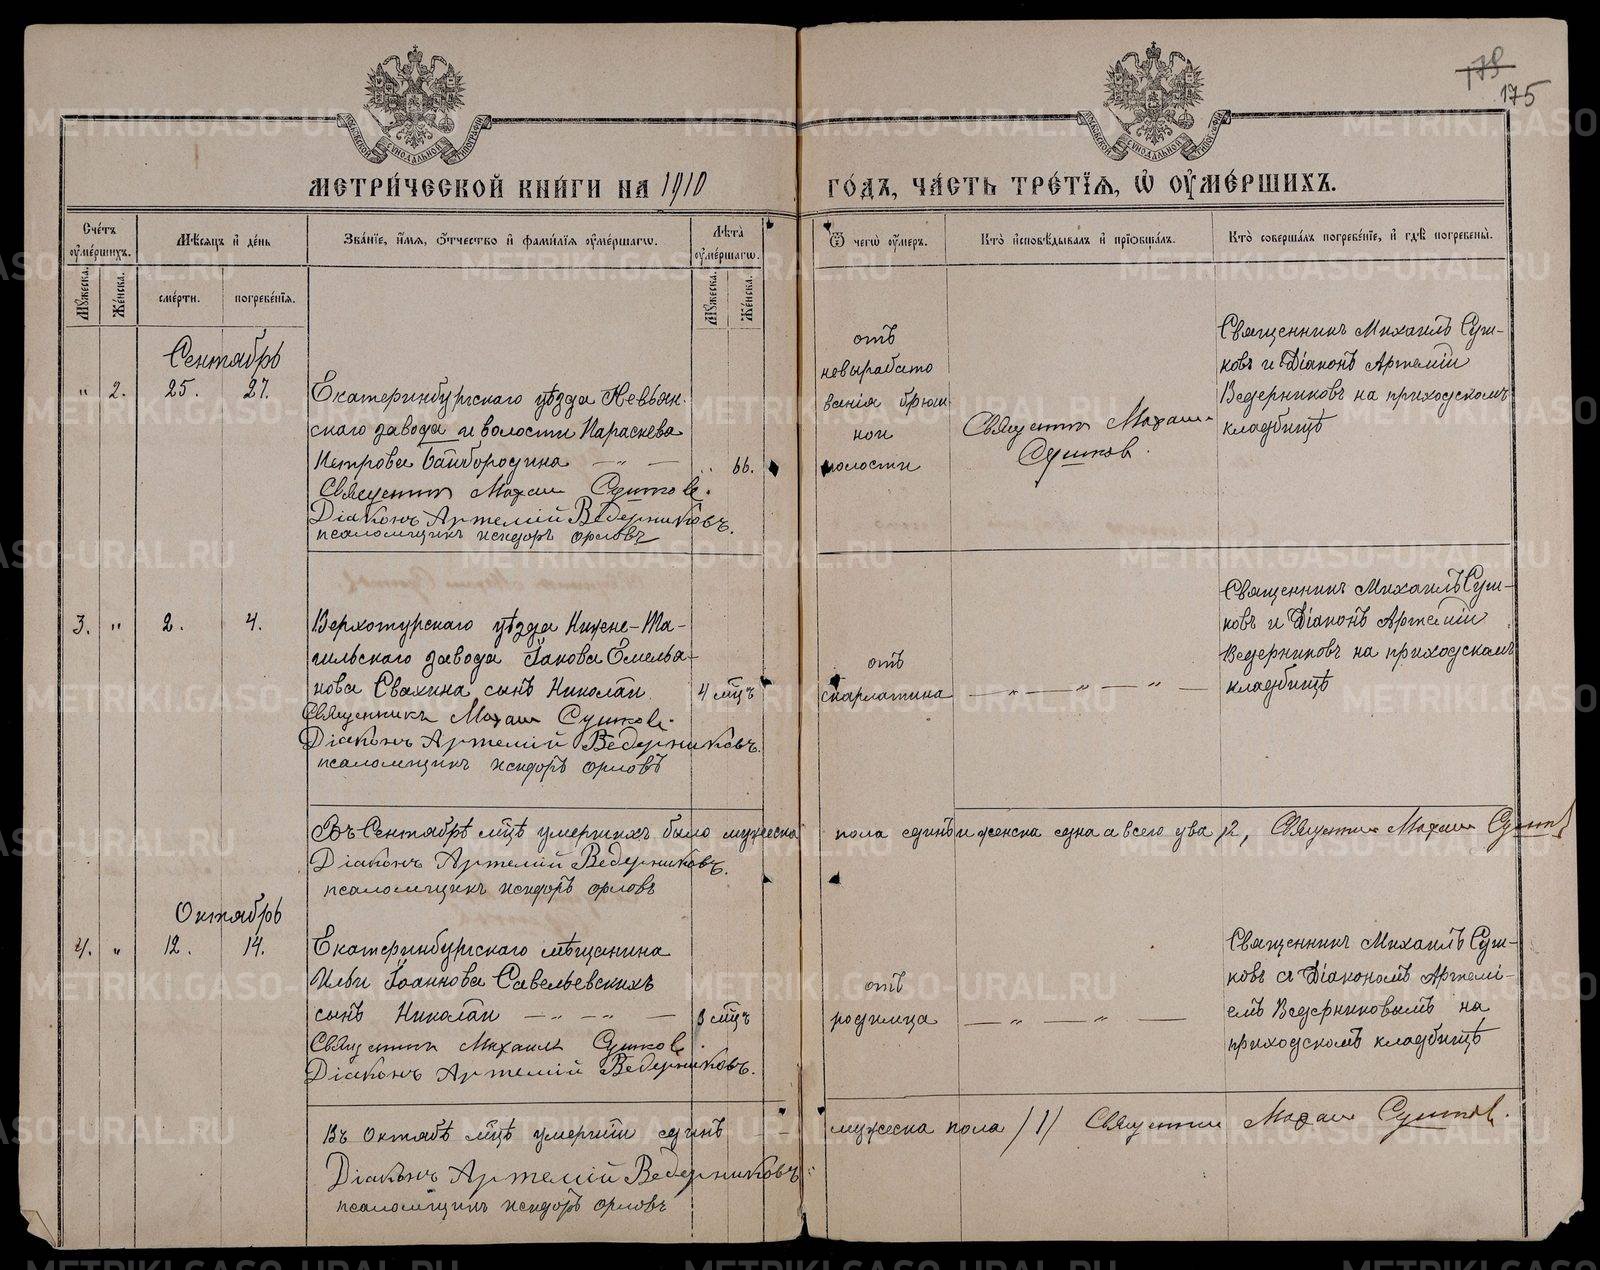 178
175
МОСКОВСКОЙ СѴНОДАЛЬНОЙ ТИПОГРАФІИ
МОСКОВСКОЙ СѴНОДАЛЬНОЙ ТИПОГРАФІИ
МЕТРИ́ЧЕСКОЙ КНИ́ГИ НА 1910
ГО́ДЪ, ЧА́СТЬ ТРЕ́ТІѦ, Ѡ҆ ОУ҆МЕ́РШИХЪ.
Сче́тъ оу҆ме́ршихъ.
Мѣ́сяцъ и҆ де́нь
Зва́нїе, и҆́мя, ѻ҆́тчество и҆ фами́лїя оу҆ме́ршагѡ.
Лѣ́та оу҆ме́ршагѡ.
Ѿ чегѡ̀ оу҆́меръ.
Кто̀ и҆сповѣ́дывалъ и҆ прїѡбща́лъ.
Кто̀ соверша́лъ погребе́нїе, и҆ гдѣ̀ погребены̀.
Мꙋ́жеска.
Же́нска.
сме́рти.
погребе́нїя.
Мꙋ́жеска.
Же́нска.
Сентябрь
" 2. 25. 27.
Екатеринбургскаго уѣзда Невьян-
скаго завода и волости Параскева
Петрова Байбородина — " —
" 66.
Священникъ Михаилъ Сушковъ.
Діаконъ Артемій Ведерниковъ.
псаломщикъ исидоръ орловъ
отъ
невырабато
ванія брюш
ной
полости
Священникъ Михаилъ
Сушков.
Священникъ Михаилъ Суш-
ковъ и Діаконъ Артемій
Ведерниковъ на приходскомъ
кладбищѣ
3. " 2. 4.
Верхотурскаго уѣзда Нижне-Та-
гильскаго завода Іакова Емелья-
нова Свахина сынъ Николай
4 мцъ
Священникъ Михаилъ Сушковъ.
Діаконъ Артемій Ведерниковъ.
псаломщикъ исидоръ орловъ
отъ
скарлатина
— " — " — " —
Священникъ Михаилъ Суш-
ковъ и Діаконъ Артемій
Ведерниковъ на приходскомъ
кладбищѣ
Въ Сентябрѣ мцѣ умершихъ было мужеска пола единъ и женска една а всего два /2, Священникъ Михаилъ Сушков
Діаконъ Артемій Ведерниковъ.
псаломщикъ исидоръ орловъ
Октябрь
4. " 12. 14.
Екатеринбургскаго мѣщанина
Ильи Іоаннова Савельевскихъ
сынъ Николай — " — " —
8 мцъ
Священникъ Михаилъ Сушков.
Діаконъ Артемій Ведерниковъ.
отъ
родимца
— " — " —
Священникъ Михаилъ Суш-
ковъ съ Діакономъ Артемі-
емъ Ведерниковымъ на
приходскомъ кладбищѣ
Въ Октябѣ мцѣ умершій единъ — — мужеска пола /1/ Священникъ Михаилъ Сушков.
Діаконъ Артемій Ведерниковъ.
псаломщикъ исидоръ орловъ
METRIKI.GASO-URAL.RU